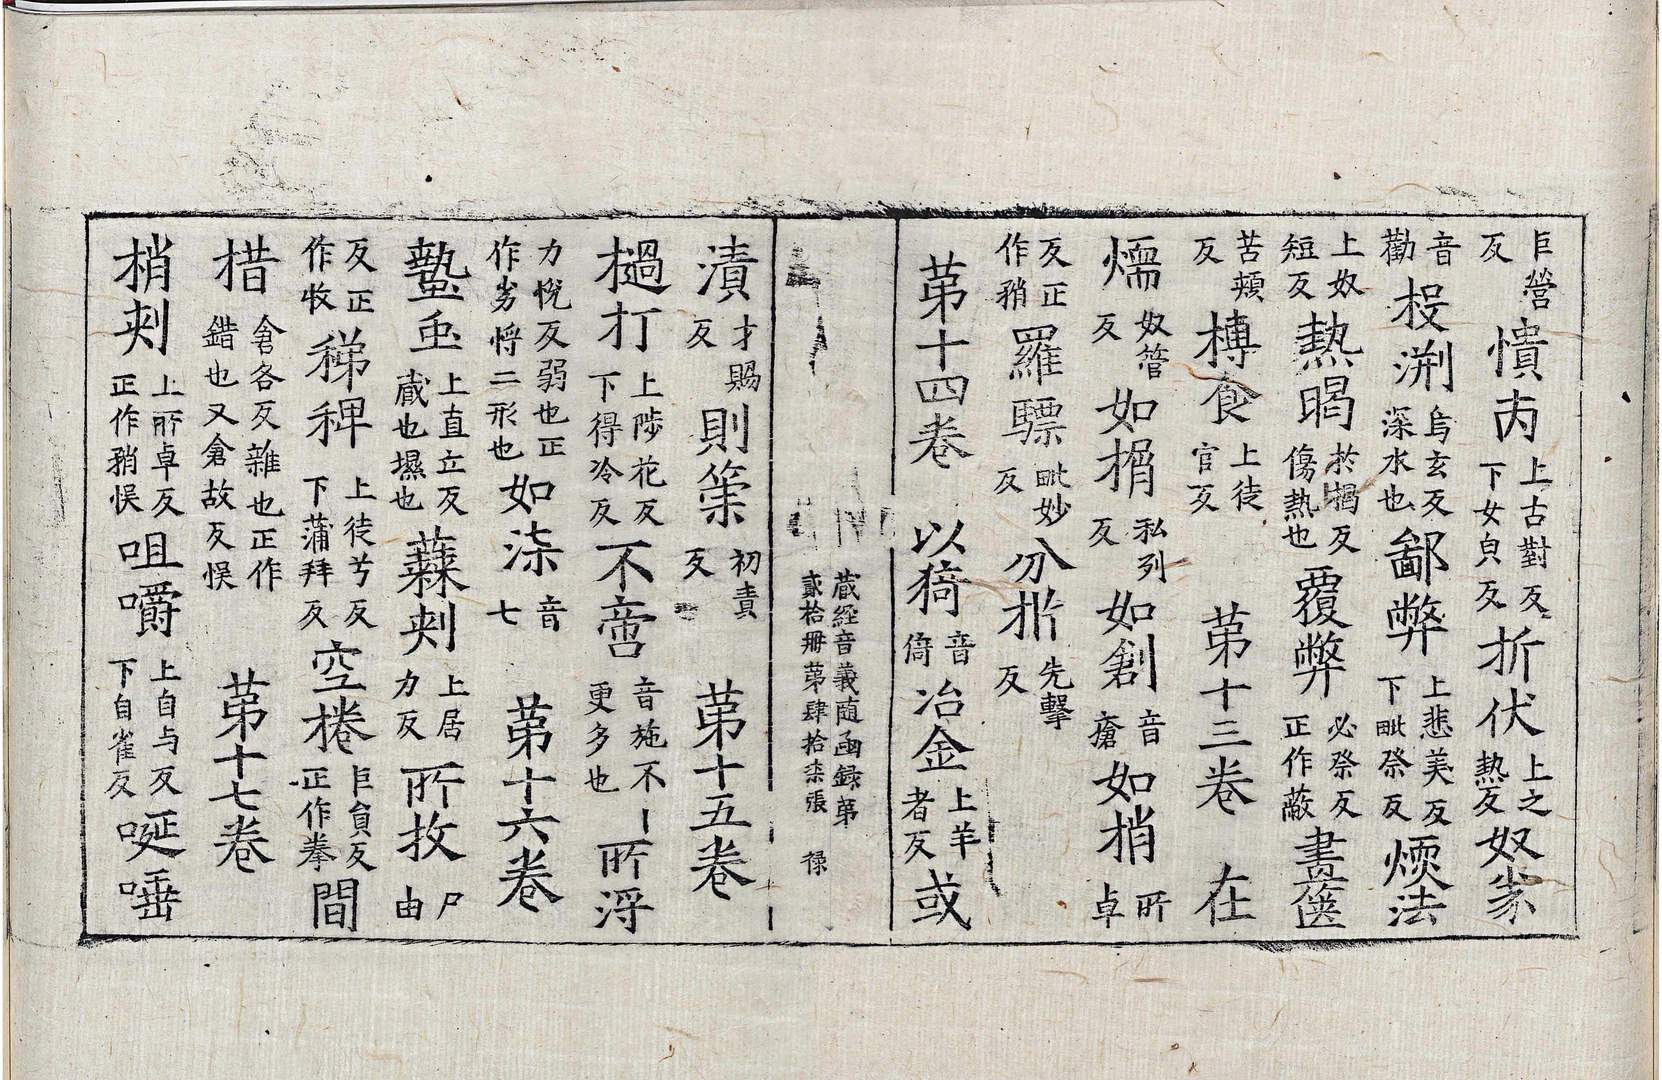 巨營反憒丙上古對反下女皃反折伏上之熱反奴㒸
音勸杸渆烏玄反深水也鄙弊上悲美反下毗祭反煗法
上奴短反熱暍於揭反傷熱也覆弊必祭反正作蔽晝篋
苦頬反摶食上徒官反第十三卷在
㬉奴管反如揟私列反如創音瘡如梢所卓
反正作矟羅驃毗妙反分析先擊反
第十四卷以猗音倚冶金上羊者反或
藏經音義隨函録第貳拾冊第肆拾柒張 祿
漬才賜反則筞初責反第十五卷
檛打上陟花反下得冷反不啻音施不丨更多也所浮
力悅反弱也正作劣㝵二形也如柒音七第十六卷
蟄䖝上直立反藏也㙷也蕀刺上居力反所收尸由
反正作收稊稗上徒兮反下蒲拜反空捲巨貟反正作拳間
措倉各反雜也正作錯也又倉故反悮第十七卷
梢刺上所卓反正作矟悮咀嚼上自与反下自雀反唌唾